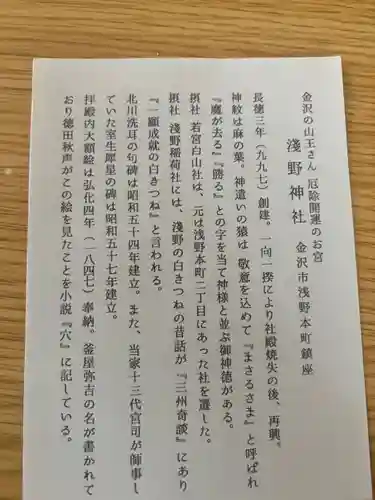 金沢の山王さん 厄除開運のお宮
淺野神社 金沢市浅野本町鎮座
長徳三年(九九七)創建。一向一揆により社殿焼失の後、再興。
神紋は麻の葉。神遣いの猿は敬意を込めて『まさるさま』と呼ばれ
『魔が去る』『勝る』との字を当て神様と並ぶ御神徳がある。
摂社 若宮白山社は、元は浅野本町二丁目にあった社を遷した。
摂社 淺野稲荷社には、浅野の白きつねの昔話が『三州奇談』にあり
『一願成就の白きつね』と言われる。
北川洗耳の句碑は昭和五十四年建立。また、当家十三代宮司が師事し
ていた室生犀星の碑は昭和五十七年建立。
拝殿内大額絵は弘化四年(一八四七)奉納。釜屋弥吉の名が書かれて
おり徳田秋声がこの絵を見たことを小説『穴』に記している。